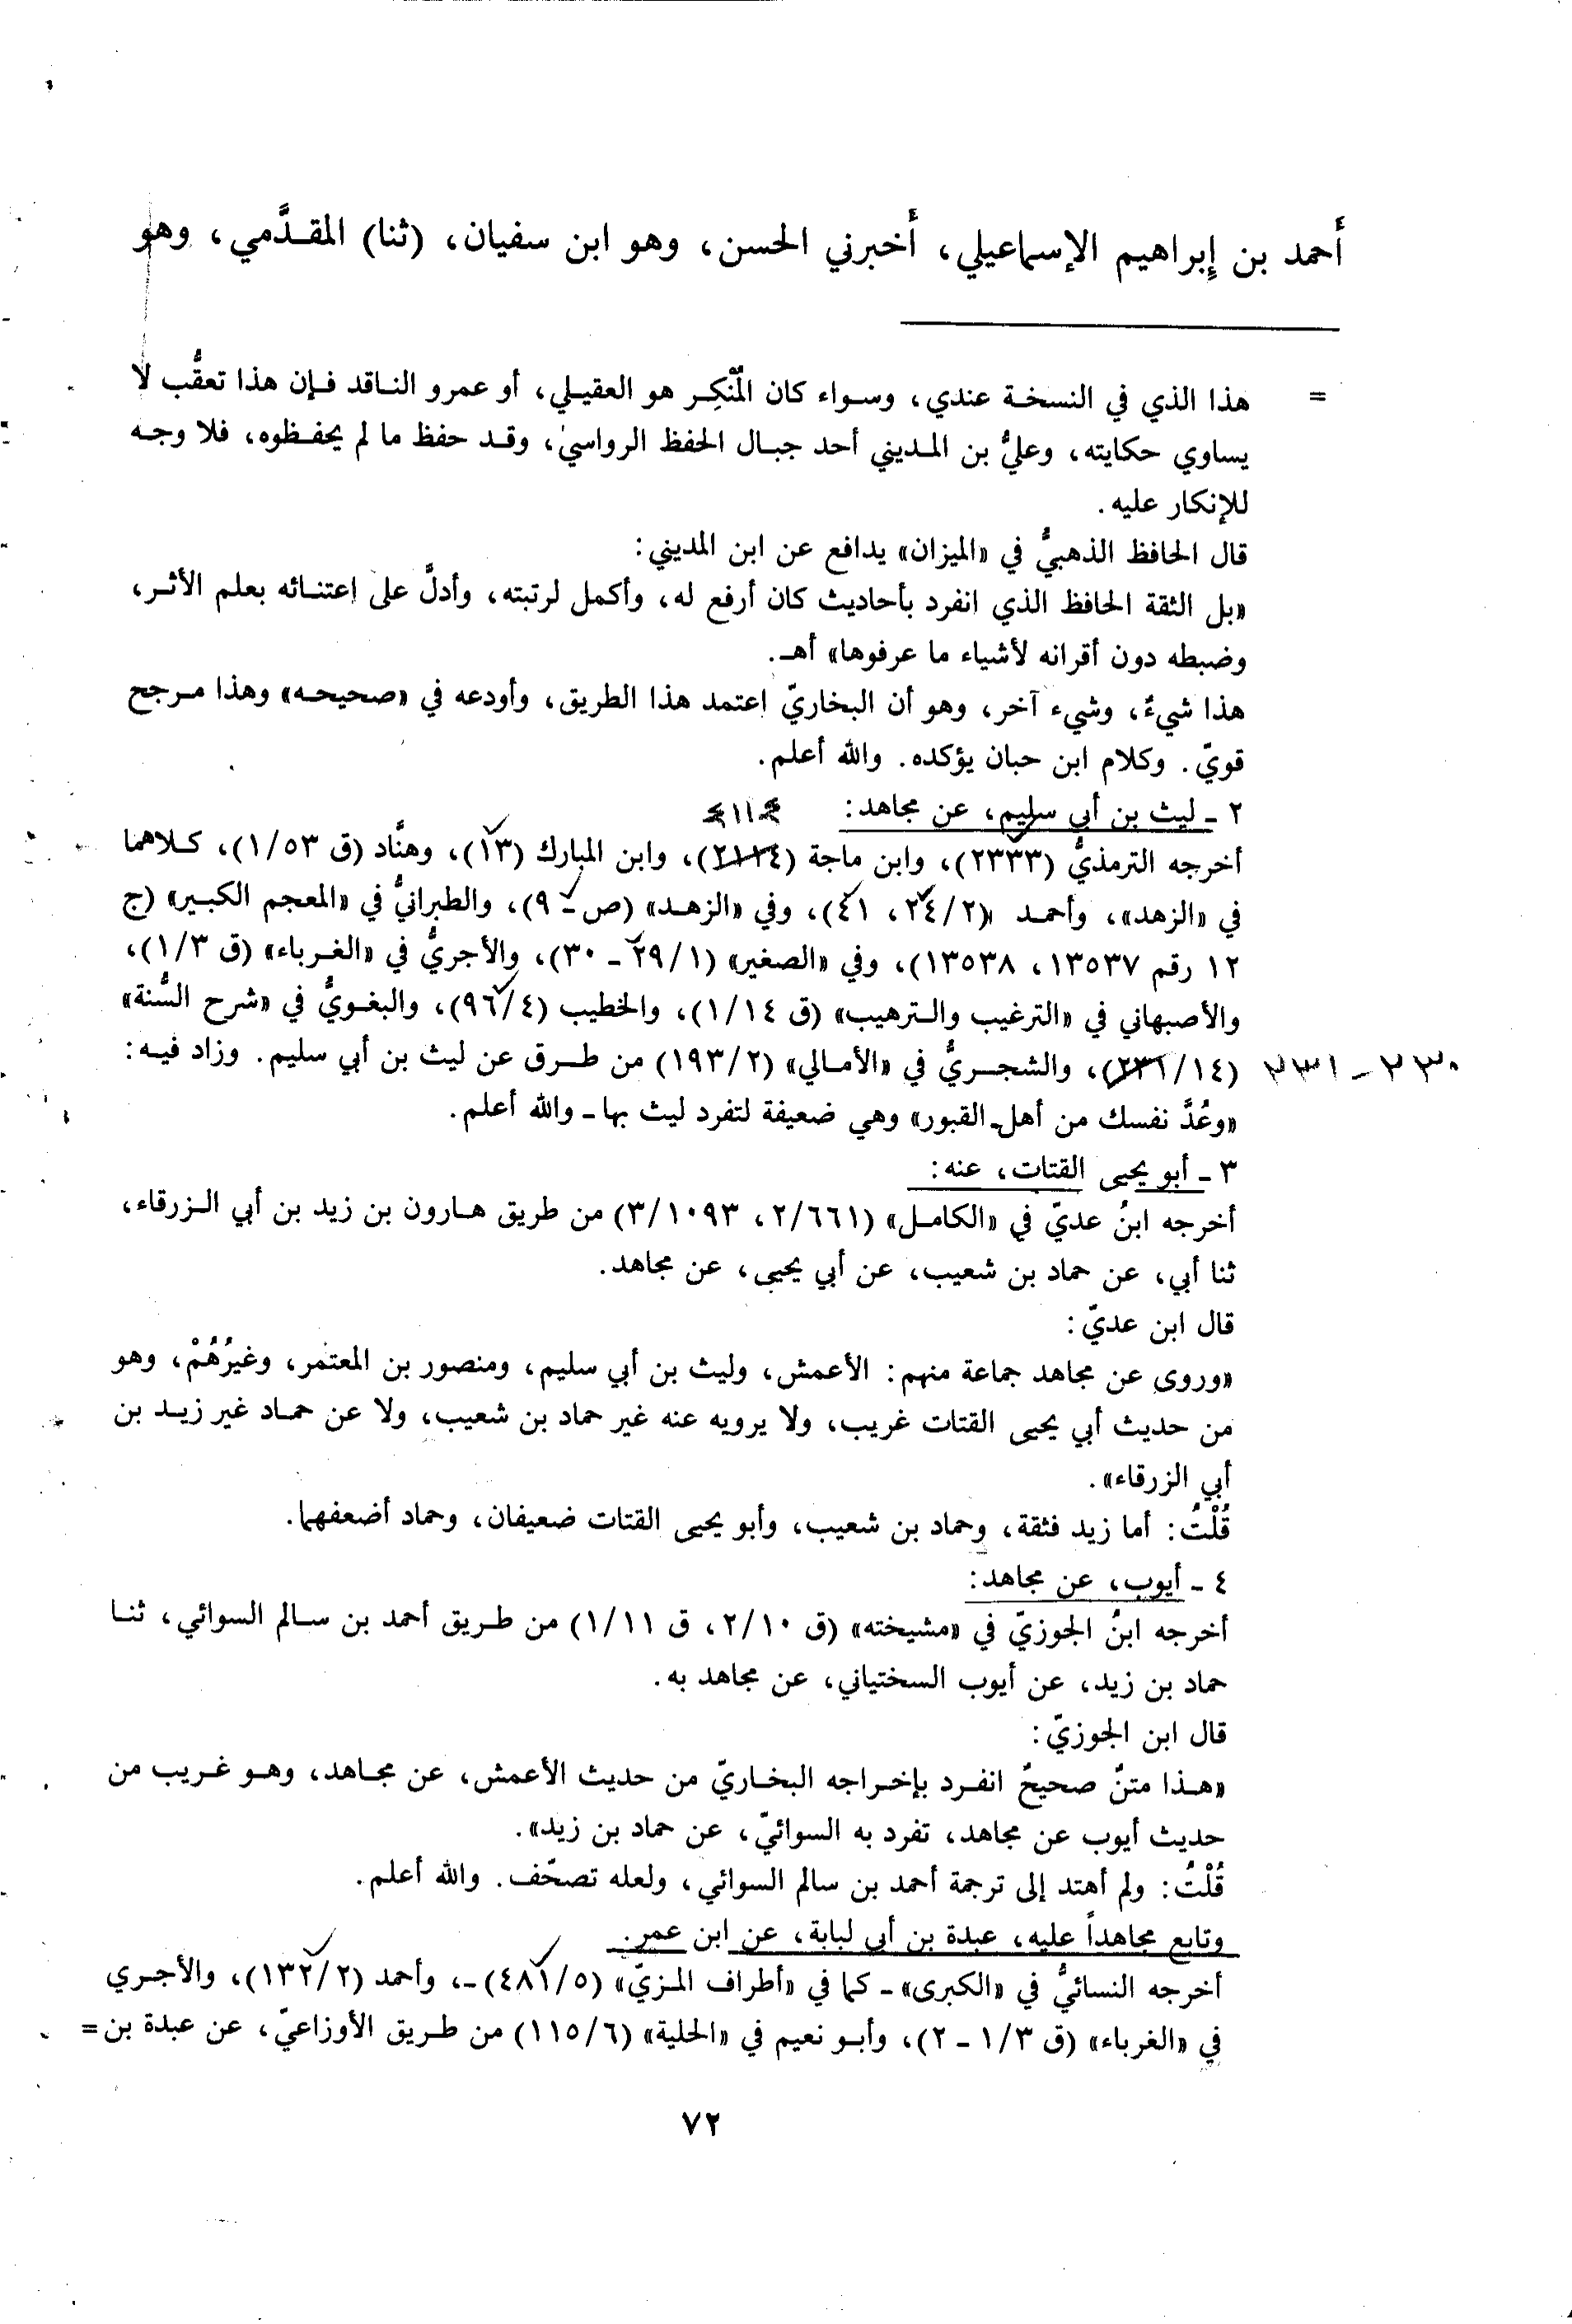 أحمد بن إبراهيم الإسماعيلي، أخبرني الحسن، وهو ابن سفيان، (ثنا) المقدَّمي، وهو
= هذا الذي في النسخة عندي، وسواء كان المُنْكِر هو العقيلي، أو عمرو الناقد فإن هذا تعقُّب لا
يساوي حكايته، وعليُّ بن المديني أحد جبال الحفظ الرواسي، وقد حفظ ما لم يحفظوه، فلا وجه
للإنكار عليه.
قال الحافظ الذهبيُّ في «الميزان» يدافع عن ابن المديني:
«بل الثقة الحافظ الذي انفرد بأحاديث كان أرفع له، وأكمل لرتبته، وأدلَّ على إعتنائه بعلم الأثر،
وضبطه دون أقرانه لأشياء ما عرفوها» أهـ.
هذا شيءٌ، وشيء آخر، وهو أن البخاريّ إعتمد هذا الطريق، وأودعه في «صحيحه» وهذا مرجح
قويّ. وكلام ابن حبان يؤكده. والله أعلم.
٢ - ليث بن أبي سليم، عن مجاهد: ٤١١٤
أخرجه الترمذيُّ (٢٣٣٣)، وابن ماجة (٢١١٤)، وابن المبارك (١٣)، وهنَّاد (ق ١/٥٣)، كلاهما
في «الزهد»، وأحمد (٢٤/٢، ٤١)، وفي «الزهد» (ص - ٩)، والطبرانيُّ في «المعجم الكبير» (ج
١٢ رقم ١٣٥٣٧، ١٣٥٣٨)، وفي «الصغير» (٢٩/١ - ٣٠)، والأجريُّ في «الغرباء» (ق ١/٣)،
والأصبهاني في «الترغيب والترهيب» (ق ١/١٤)، والخطيب (٩٦/٤)، والبغويُّ في «شرح السُّنة»
٢٣٠ - ٢٣١ (٢٣١/١٤)، والشجريُّ في «الأمالي» (١٩٣/٢) من طرق عن ليث بن أبي سليم. وزاد فيه:
«وعُدَّ نفسك من أهل القبور» وهي ضعيفة لتفرد ليث بها - والله أعلم.
٣ - أبو يحيى القتات، عنه:
أخرجه ابنُ عديّ في «الكامل» (٢/٦٦١، ٣/١٠٩٣) من طريق هارون بن زيد بن أبي الزرقاء،
ثنا أبي، عن حماد بن شعيب، عن أبي يحيى، عن مجاهد.
قال ابن عديّ:
«وروى عن مجاهد جماعة منهم: الأعمش، وليث بن أبي سليم، ومنصور بن المعتمر، وغيرُهُمْ، وهو
من حديث أبي يحيى القتات غريب، ولا يرويه عنه غير حماد بن شعيب، ولا عن حماد غير زيد بن
أبي الزرقاء».
قُلْتُ: أما زيد فثقة، وحماد بن شعيب، وأبو يحيى القتات ضعيفان، وحماد أضعفهما.
٤ - أيوب، عن مجاهد:
أخرجه ابنُ الجوزيّ في «مشيخته» (ق ٢/١٠، ق ١/١١) من طريق أحمد بن سالم السوائي، ثنا
حماد بن زيد، عن أيوب السختياني، عن مجاهد به.
قال ابن الجوزيّ:
«هذا متنٌ صحيحٌ انفرد بإخراجه البخاريّ من حديث الأعمش، عن مجاهد، وهو غريب من
حديث أيوب عن مجاهد، تفرد به السوائيّ، عن حماد بن زيد».
قُلْتُ: ولم أهتد إلى ترجمة أحمد بن سالم السوائي، ولعله تصحّف. والله أعلم.
وتابع مجاهداً عليه، عبدة بن أبي لبابة، عن ابن عمر.
أخرجه النسائيُّ في «الكبرى» - كما في «أطراف المزيّ» (٤٨١/٥) -، وأحمد (١٣٢/٢)، والأجري
في «الغرباء» (ق ١/٣ - ٢)، وأبو نعيم في «الحلية» (١١٥/٦) من طريق الأوزاعيّ، عن عبدة بن =
٧٢